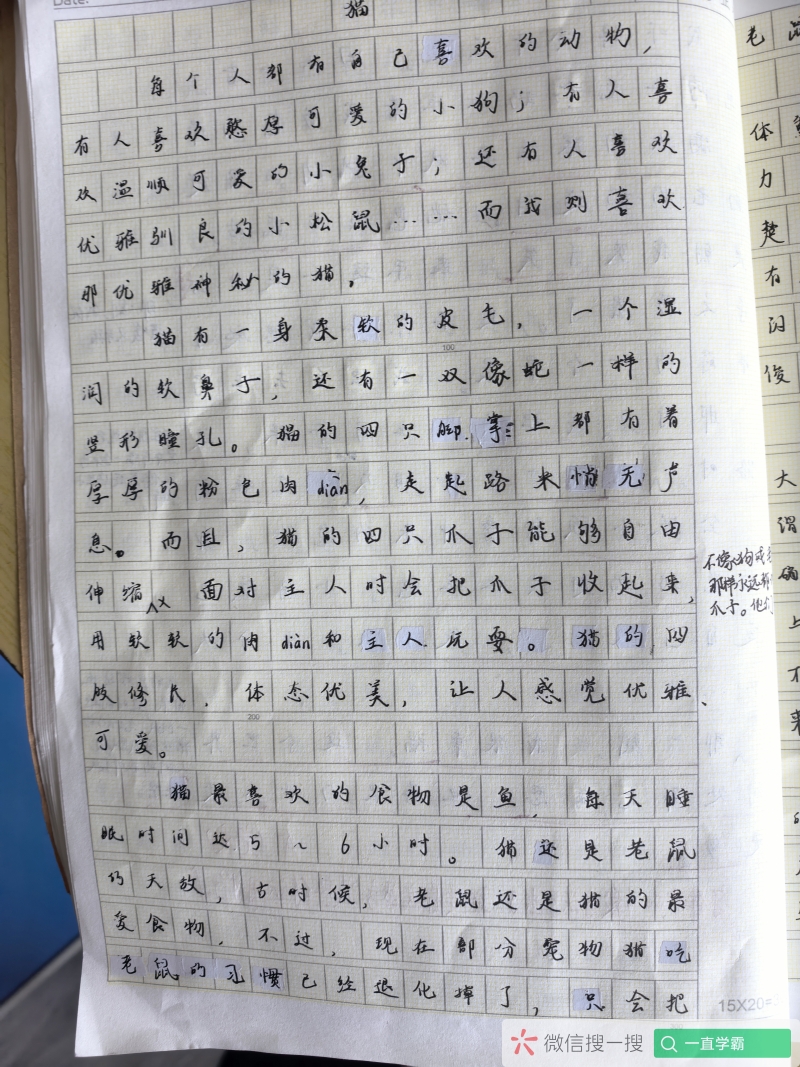 Date:
猫
每个人都有自己喜欢的动物，
有人喜欢憨厚可爱的小狗；有人喜
欢温顺可爱的小兔子；还有人喜欢
优雅驯良的小松鼠……而我则喜欢
那优雅神秘的猫。
猫有一身柔软的皮毛，一个湿
润的软鼻子，还有一双像蛇一样的
100
竖形瞳孔。猫的四只脚掌上都有着
厚厚的粉色肉diàn，走起路来悄无声
息。而且，猫的四只爪子能够自由
伸缩，面对主人时会把爪子收起来，
不像狗
那样永远
爪子。
用软软的肉diàn和主人玩耍。猫的四
肢修长，体态优美，让人感觉优雅、
200
可爱。
猫最喜欢的食物是鱼，每天睡
眠时间达5~6小时。猫还是老鼠
的天敌，古时候，老鼠还是猫的最
爱食物，不过，现在部分宠物猫吃
老鼠的习惯已经退化掉了，只会把
15X20=
老鼠
体
力
楚
有
闪
俊
大
谓
确
上
不
来
微信搜一搜
一直学霸